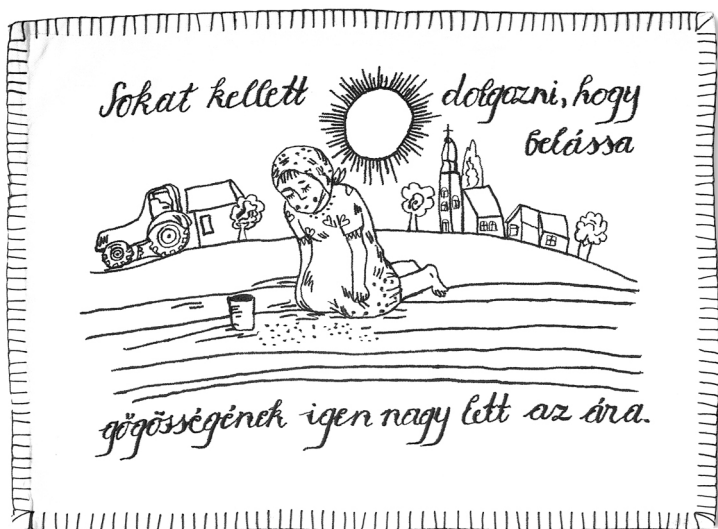 Sokat kellett dolgozni, hogy
belássa
gőgősségének igen nagy lett az ára.